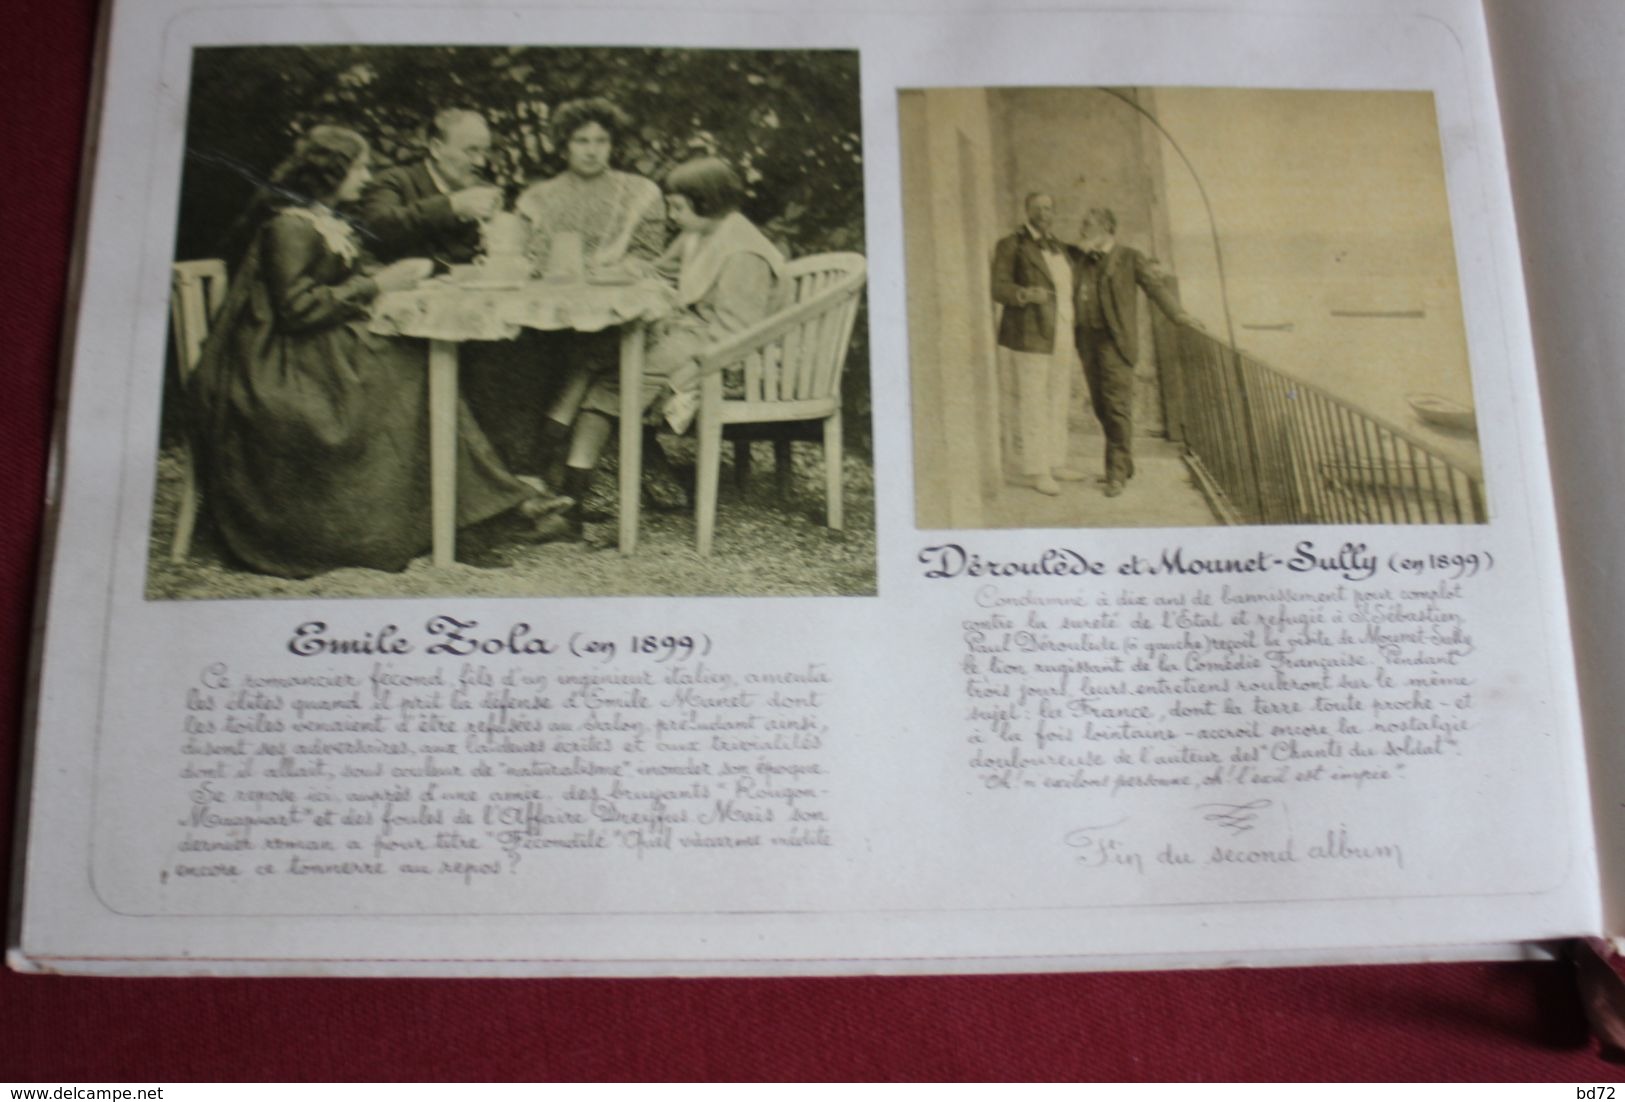 Emile Zola (en 1899)
Ce romancier fécond, fils d'un ingénieur italien, ameuta
les élites quand il prit la défense d'Emile Manet dont
les toiles venaient d'être refusées au Salon, préludant ainsi,
disent ses adversaires, aux laideurs écrites et aux trivialités
dont il allait, sous couleur de "naturalisme" inonder son époque.
Se repose ici, auprès d'une amie, des bruyants "Rougon-
Macquart" et des foules de l'Affaire Dreyfus. Mais son
dernier roman a pour titre "Fécondité" Quel vacarme médite
encore ce tonnerre au repos?
Déroulède et Mounet-Sully (en 1899)
Condamné à dix ans de bannissement pour complot
contre la sureté de l'Etat et refugié à St Sébastien,
Paul Déroulède (à gauche) reçoit la visite de Mounet-Sully
le lion rugissant de la Comédie Française. Pendant
trois jours, leurs entretiens rouleront sur le même
sujet: la France, dont la terre toute proche - et
à la fois lointaine - accroit encore la nostalgie
douloureuse de l'auteur des "Chants du soldat".
"Oh! n'exilons personne, oh! l'exil est impie".
Fin du second album
bd72